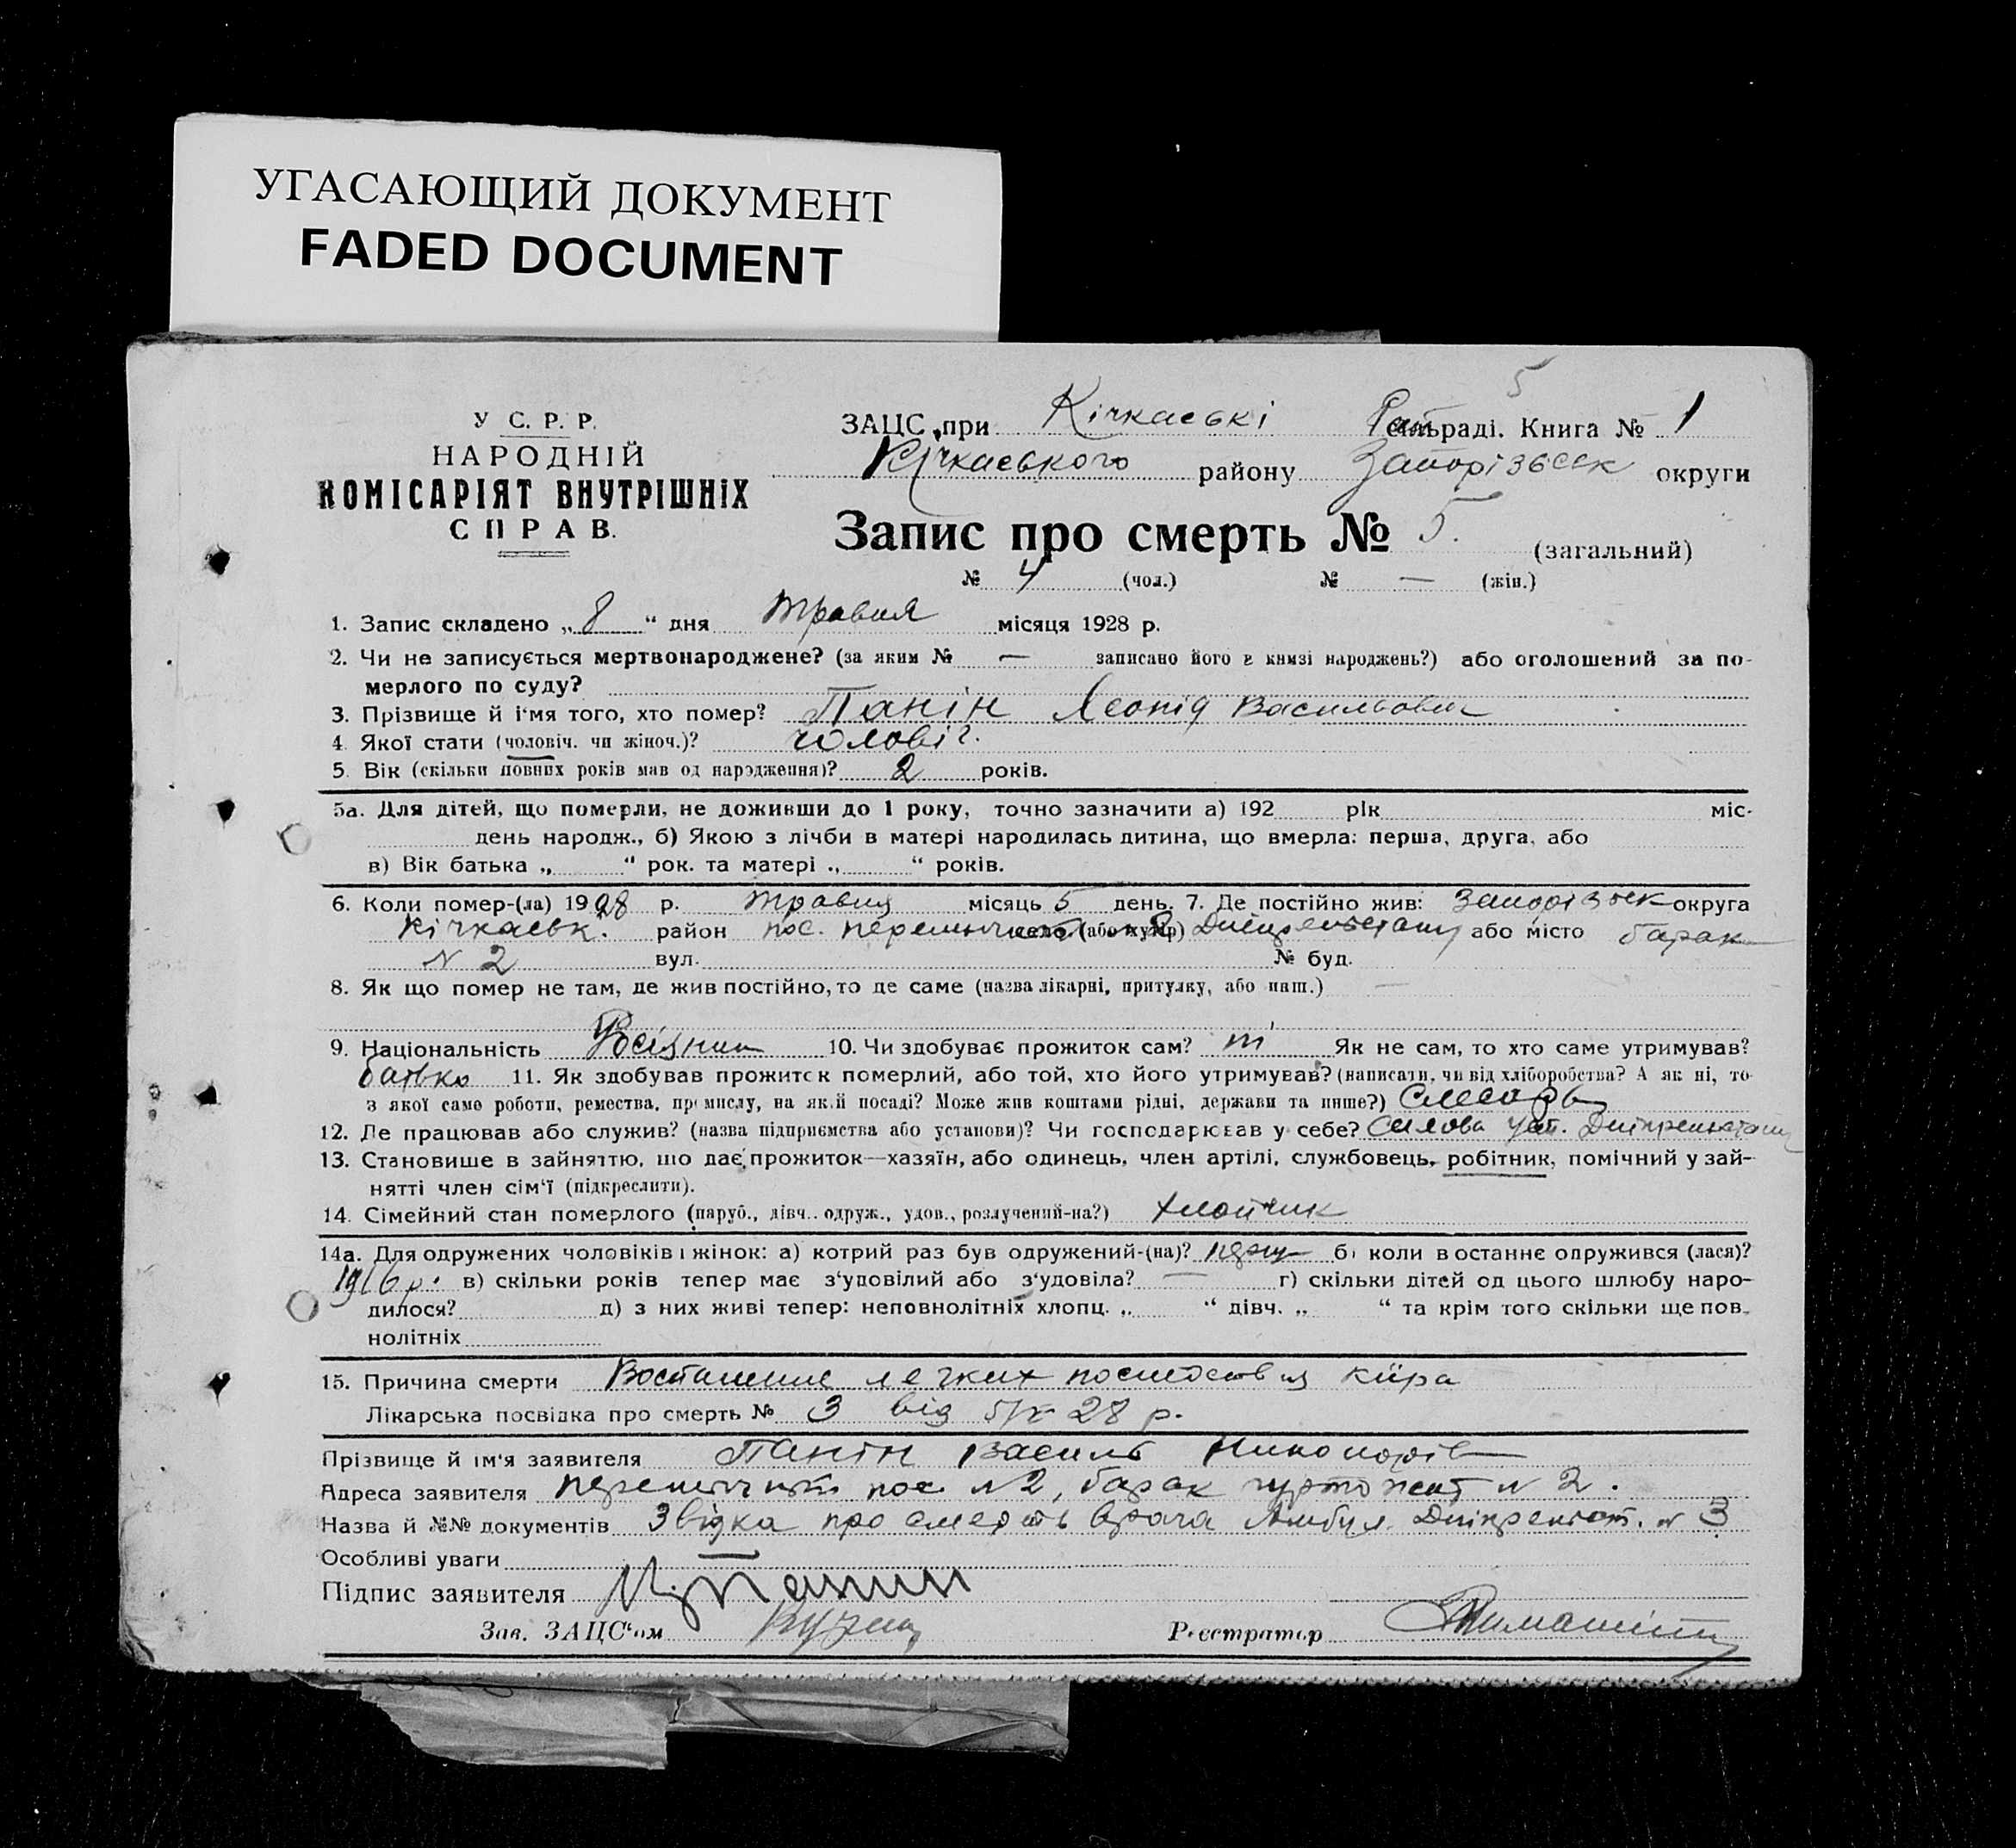 УГАСАЮЩИЙ ДОКУМЕНТ
FADED DOCUMENT
5
У С. Р. Р.
НАРОДНІЙ
КОМІСАРІЯТ ВНУТРІШНІХ
СПРАВ.
ЗАЦС при Кічкаські Рай сільраді. Книга № 1
Кічкаського району Запорізськ округи
Запис про смерть № 5. (загальний)
№ 4 (чол.) № — (жін.)
1. Запис складено „8“ дня травня місяця 1928 р.
2. Чи не записується мертвонароджене? (за яким № — записано його в книзі народжень?) або оголошений за по-
мерлого по суду?
3. Прізвище й і'мя того, хто помер? Панін Леонід Васильович
4. Якої стати (чоловіч. чи жіноч.)? чоловіч.
5. Вік (скільки повних років мав од народження)? 2 років.
5а. Для дітей, що померли, не доживши до 1 року, точно зазначити а) 192 рік міс-
день народж., б) Якою з лічби в матері народилась дитина, що вмерла: перша, друга, або
в) Вік батька „ “ рок. та матері „ “ років.
6. Коли помер-(ла) 1928 р. травня місяць 5 день. 7. Де постійно жив: Запорізьк округа
Кічкаськ. район пос. село (або хутір) або місто барак
N 2 вул. № буд.
8. Як що помер не там, де жив постійно, то де саме (назва лікарні, притулку, або инш.) —
9. Національність 10. Чи здобуває прожиток сам? ні Як не сам, то хто саме утримував?
батько 11. Як здобував прожиток померлий, або той, хто його утримував? (написати, чи від хліборобства? А як ні, то
з якої саме роботи, ремества, промислу, на якій посаді? Може жив коштами рідні, держави та инше?) Слесарь
12. Де працював або служив? (назва підприємства або установи)? Чи господарював у себе? Силова
13. Становише в зайняттю, що дає прожиток—хазяїн, або одинець, член артілі, службовець, робітник, помічний у зай-
нятті член сім'ї (підкреслити).
14. Сімейний стан померлого (паруб., дівч.. одруж., удов., розлучений-на?) хлопчик
14а. Для одружених чоловіків і жінок: а) котрий раз був одружений-(на)? б) коли востаннє одружився (лася)?
1916 р. в) скільки років тепер має з'удовілий або з'удовіла? — г) скільки дітей од цього шлюбу наро-
дилося? д) з них живі тепер: неповнолітніх хлопц. „ “ дівч. „ “ та крім того скільки ще пов-
нолітніх
15. Причина смерти легких кіра
Лікарська посвідка про смерть № 3 від 5/V 28 р.
Прізвище й ім'я заявителя Панін Василь
Адреса заявителя пос. N 2, барак гуртожит N 2.
Назва й №№ документів Звідка про смерть врача Амбул. N 3
Особливі уваги
Підпис заявителя Панин
Зав. ЗАЦС'ом
Реєстратор